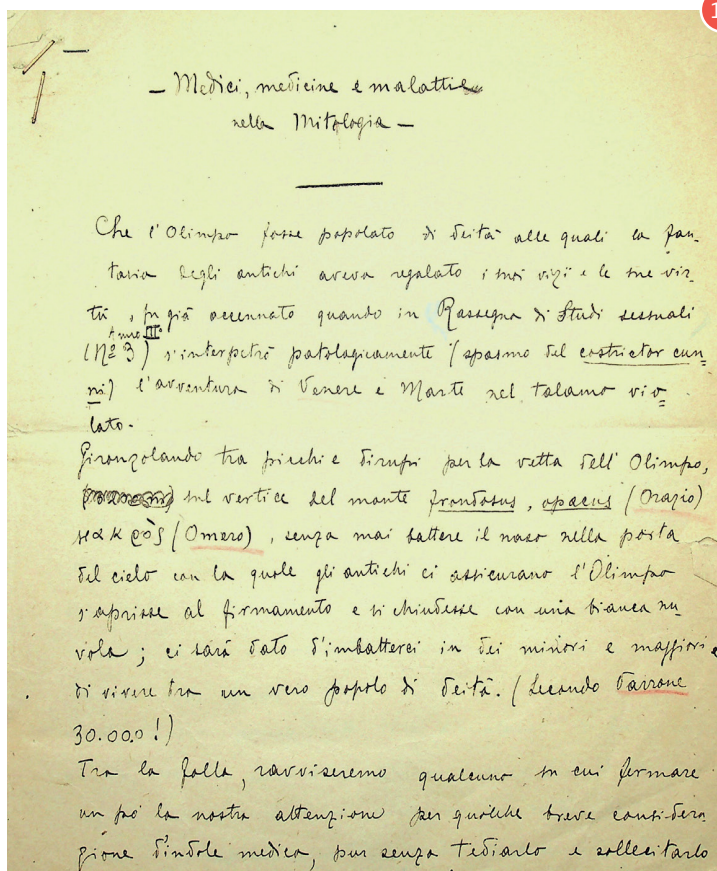 1
— Medici, medicine e malattie
nella Mitologia —
Che l'Olimpo fosse popolato di deità alle quali la fan-
tasia degli antichi aveva regalato i suoi vizi e le sue vir-
tù, fu già accennato quando in Rassegna di Studi sessuali
Anno III°
(N° 3) s'interpetrò patologicamente (spasmo del costrictor cun-
ni) l'avventura di Venere e Marte nel talamo vio-
lato.
Gironzolando tra picchi e dirupi per la vetta dell'Olimpo,
sul vertice del monte frondosus, opacus (Orazio)
μακρὸς (Omero), senza mai battere il naso nella porta
del cielo con la quale gli antichi ci assicurano l'Olimpo
s'aprisse al firmamento e si chiudesse con una bianca nu-
vola; ci sarà dato d'imbatterci in dei minori e maggiori e
di vivere tra un vero popolo di deità. (Secondo Varrone
30.000!)
Tra la folla, ravviseremo qualcuno su cui fermare
un pó la nostra attenzione per qualche breve considera-
zione d'indole medica, pur senza tediarlo e sollecitarlo